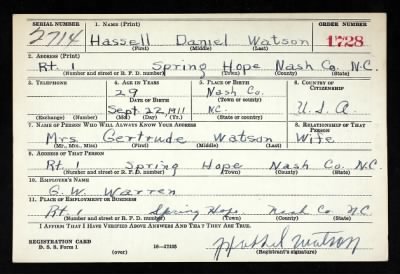 SERIAL NUMBER 1. NAME (Print) ORDER NUMBER
2714 Hassell Daniel Watson 1728
(First) (Middle) (Last)
2. ADDRESS (Print)
Rt. 1 Spring Hope Nash Co. N.C.
(Number and street or R. F. D. number) (Town) (County) (State)
3. TELEPHONE 4. AGE IN YEARS 5. PLACE OF BIRTH 6. COUNTRY OF CITIZENSHIP
29 Nash Co.
DATE OF BIRTH (Town or county)
Sept. 22, 1911 N.C. U.S.A.
(Exchange) (Number) (Mo.) (Day) (Yr.) (State or country)
7. NAME OF PERSON WHO WILL ALWAYS KNOW YOUR ADDRESS 8. RELATIONSHIP OF THAT PERSON
Mrs. Gertrude Watson Wife
(Mr., Mrs., Miss) (First) (Middle) (Last)
9. ADDRESS OF THAT PERSON
Rt. 1 Spring Hope Nash Co. N.C.
(Number and street or R. F. D. number) (Town) (County) (State)
10. EMPLOYER'S NAME
G. W. Warren
11. PLACE OF EMPLOYMENT OR BUSINESS
Rt. 1 Spring Hope Nash Co N.C.
(Number and street or R. F. D. number) (Town) (County) (State)
I AFFIRM THAT I HAVE VERIFIED ABOVE ANSWERS AND THAT THEY ARE TRUE.
REGISTRATION CARD
D. S. S. Form 1 (over) 16—17105 Hassel Watson
(Registrant's signature)